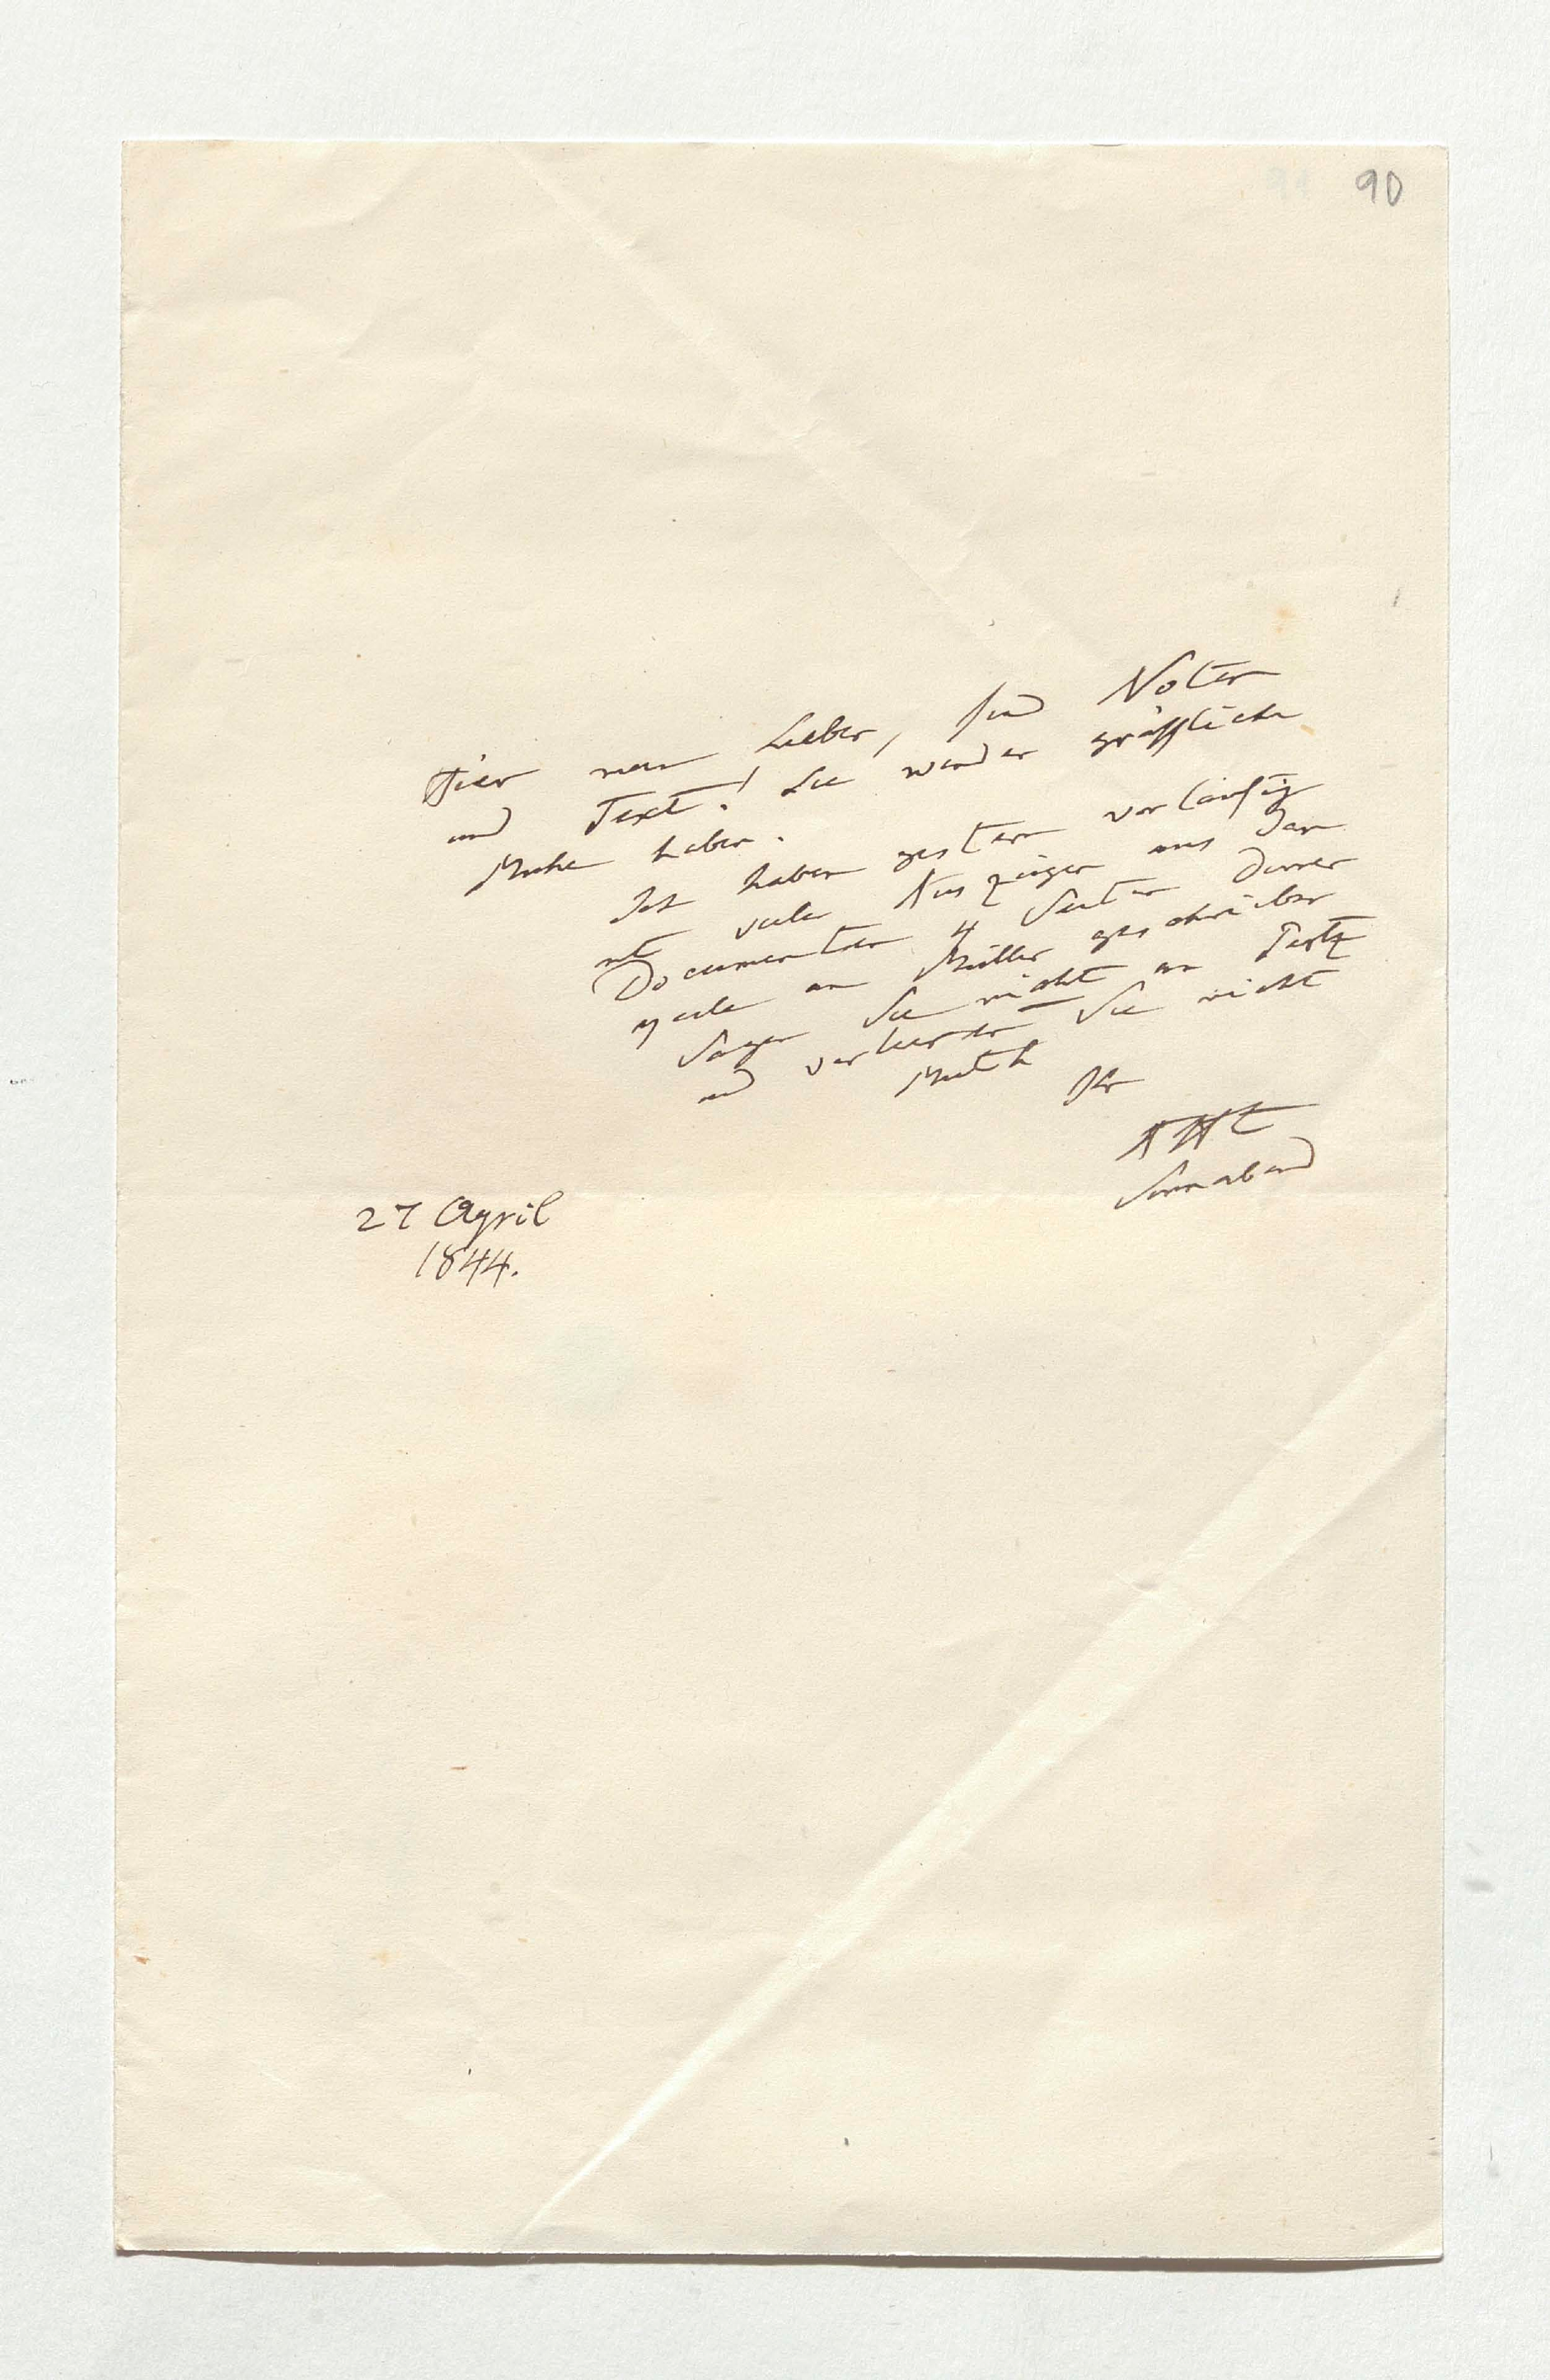 90
Hier mein Lieber, sind Noten
und Text! Sie werden gräßliche
Mühe haben.
Ich habe gestern vorläufig
mit vielen Auszügen aus den
Documenten 4 Seiten
an Müller geschrieben
Sagen Sie nicht an Pertz
und verlieren Sie nicht
Muth
Ihr
AHt
Sonnabend
27 April
1844.